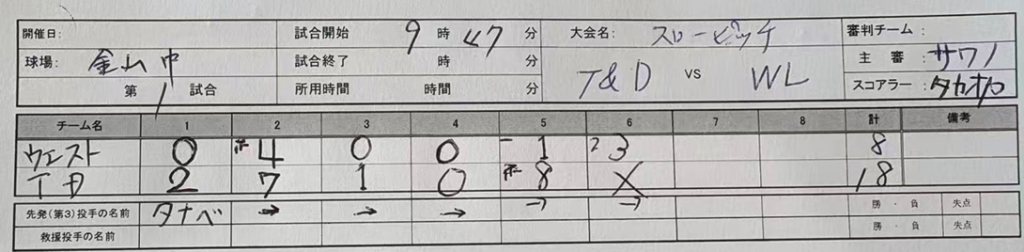 開催日: 試合開始 9 時 47 分 大会名: スローピッチ 審判チーム:
球場: 金山中 試合終了 時 分 T&D vs WL 主審: サワノ
第 1 試合 所用時間 時間 分 スコアラー:
チーム名 1 2 3 4 5 6 7 8 計 備考
ウエスト 0 4 0 0 1 2 3 8
TD 2 7 1 0 8 X 18
先発(第3)投手の名前 タナベ → → → → → 勝・負 失点
救援投手の名前 勝・負 失点